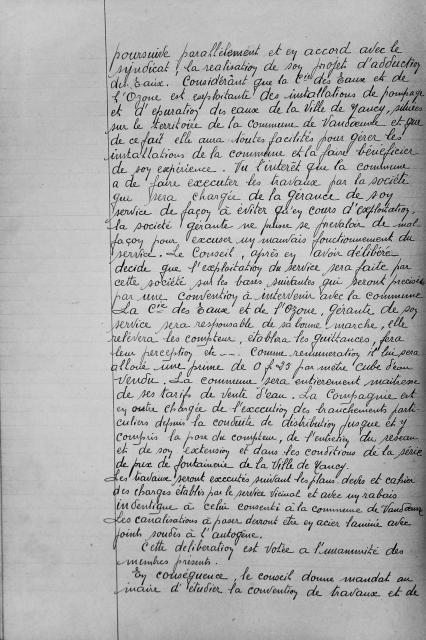 poursuive parallèlement et en accord avec le
syndicat, la réalisation de son projet d'adduction
des Eaux. Considérant que la Cie des Eaux et de
l'Ozone est exploitante des installations de pompage
et d'épuration des eaux de la Ville de Nancy, situées
sur le territoire de la commune de Vandoeuvre et que
de ce fait elle aura toutes facilités pour gérer les
installations de la commune et la faire bénéficier
de son expérience. Vu l'intérêt que la commune
a de faire executer les travaux par la société
que sera chargée de la gérance de son
service de façon à éviter qu'en cours d'exploitation,
la société gérante ne puisse se prévaloir de mal
façon pour excuser un mauvais fonctionnement du
service. Le Conseil, après en avoir délibéré
décide que l'exploitation du service sera faite par
cette société sur les bases suivantes qui seront précisées
par une convention à intervenir avec la commune
La Cie des Eaux et de l'Ozone, gérante de son
service sera responsable de sa bonne marche, elle
relèvera les compteur, établera les quittances, fera
leur perception etc... Comme remunération il lui sera
alloué une prime de 0f,33 par mètre cube d'eau
vendu. La commune sera entièrement maitresse
de ses tarifs de vente d'eau. La Compagnie est
en outre chargée de l'execution des branchements parti-
culiers depuis la conduite de distribution jusque et y
compris la pose du compteur, de l'entretien du réseau
et de son extension et dans les conditions de la série
de prix de fontainerie de la Ville de Nancy.
Les travaux seront executés suivant les plans, devis et cahier
des charges établis par le service vicinal et avec un rabais
indentique à celui consenti à la commune de Vandoeuvre
Les canalisations à poser devront être en acier laminé avec
joints soudés à l'autogène.
Cette délibération est votée à l'unanimité des
membres présents.
En conséquence, le conseil donne mandat au
maire d'étudier la convention de travaux et de